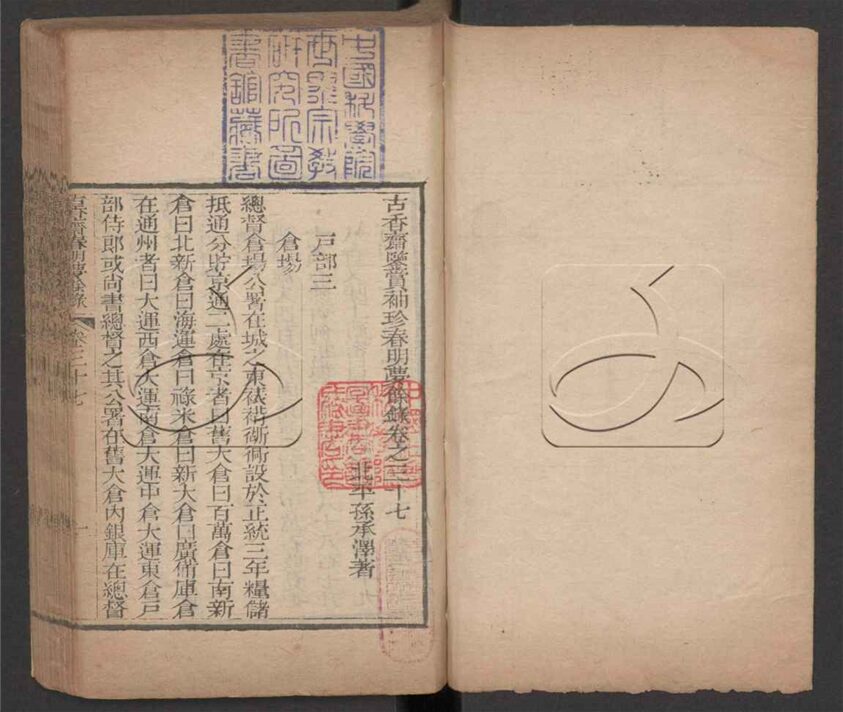 古香齋鑒賞袖珍春明夢餘錄卷之三十七
北平孫承澤著
戸部三
倉場
總督倉塲公署在城之東裱褙衚衕設於正統三年糧儲
抵通分貯京通二處在京者曰舊大倉曰百萬倉曰南新
倉曰北新倉曰海運倉曰祿米倉曰新大倉曰廣備庫倉
在通州者曰大運西倉大運南倉大運中倉大運東倉戸
部侍郎或尚書總督之其公署在舊大倉內銀庫在總督
古香齋春明夢餘錄
卷三十七
一
中國科學院
世界宗教
研究所圖
書舘藏書